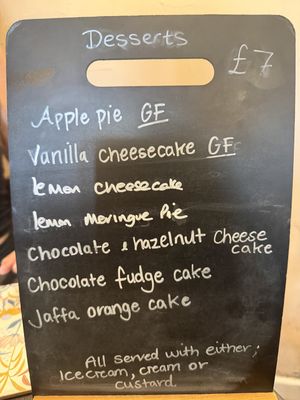 Desserts
£7
Apple pie GF
Vanilla cheesecake GF
lemon cheesecake
lemon Meringue Pie
Chocolate & hazelnut Cheese
cake
Chocolate fudge cake
Jaffa orange cake
All served with either;
Ice cream, cream or
custard.